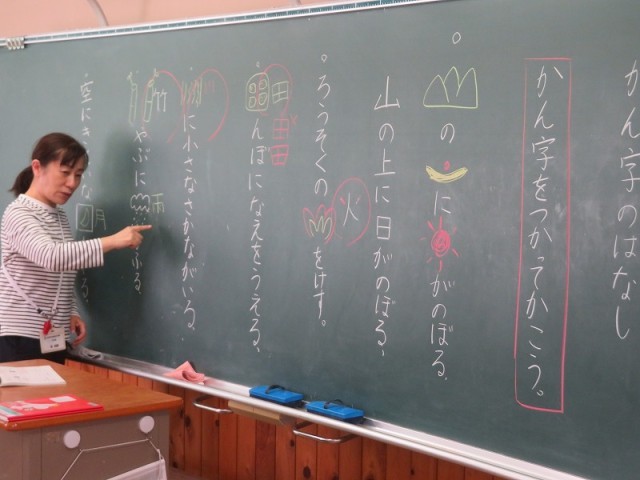 かん字のはなし
かん字をつかってかこう。
の に がのぼる、
山の上に日がのぼる、
ろうそくの をけす。
火
んぼになえをうえる、
田
田
に小さなさかながいる、
やぶに ふる、
竹
雨
空にき な る、
月